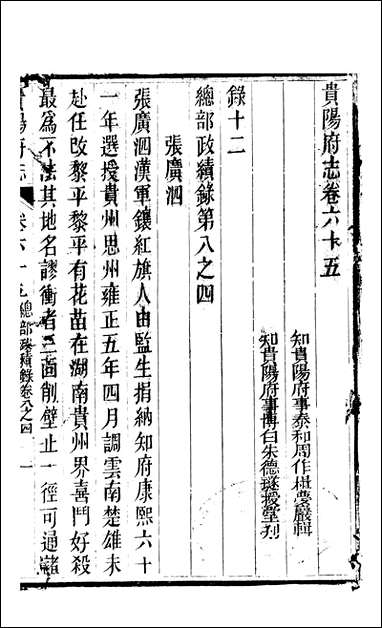 貴陽府志卷六十五
知貴陽府事泰和周作楫夔巖輯
知貴陽府事博白朱德璲授堂刋
錄十二
總部政績錄第八之四
張廣泗
張廣泗漢軍鑲紅旗人由監生捐納知府康熙六十
一年選授貴州思州雍正五年四月調雲南楚雄未
赴任改黎平黎平有花苗在湖南貴州界喜鬥好殺
最爲不法其地名謬衝者三面削壁止一徑可通諸
貴陽府志 卷六十五 總部政績錄卷八之四 一